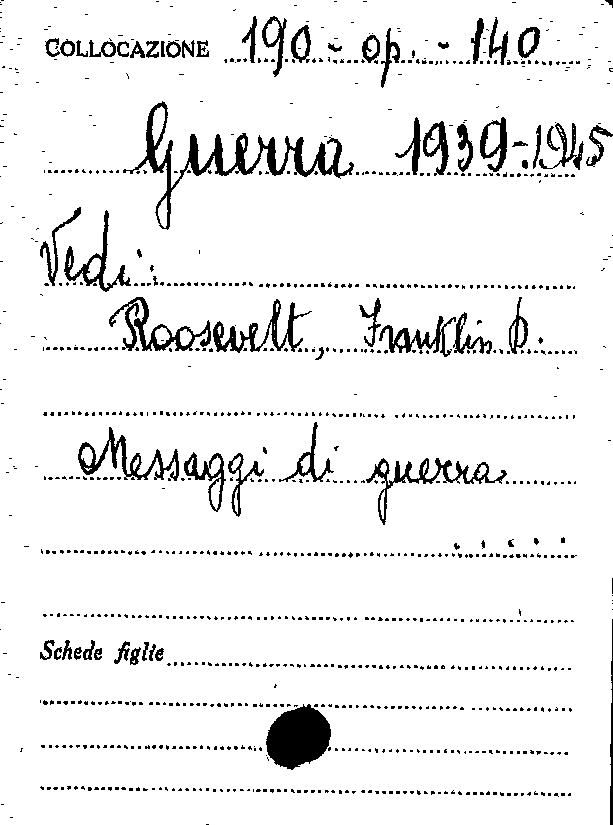 COLLOCAZIONE 190 - op. - 140
Guerra 1939-1945
Vedi:
Roosevelt, Franklin D.
Messaggi di guerra
.....
Schede figlie